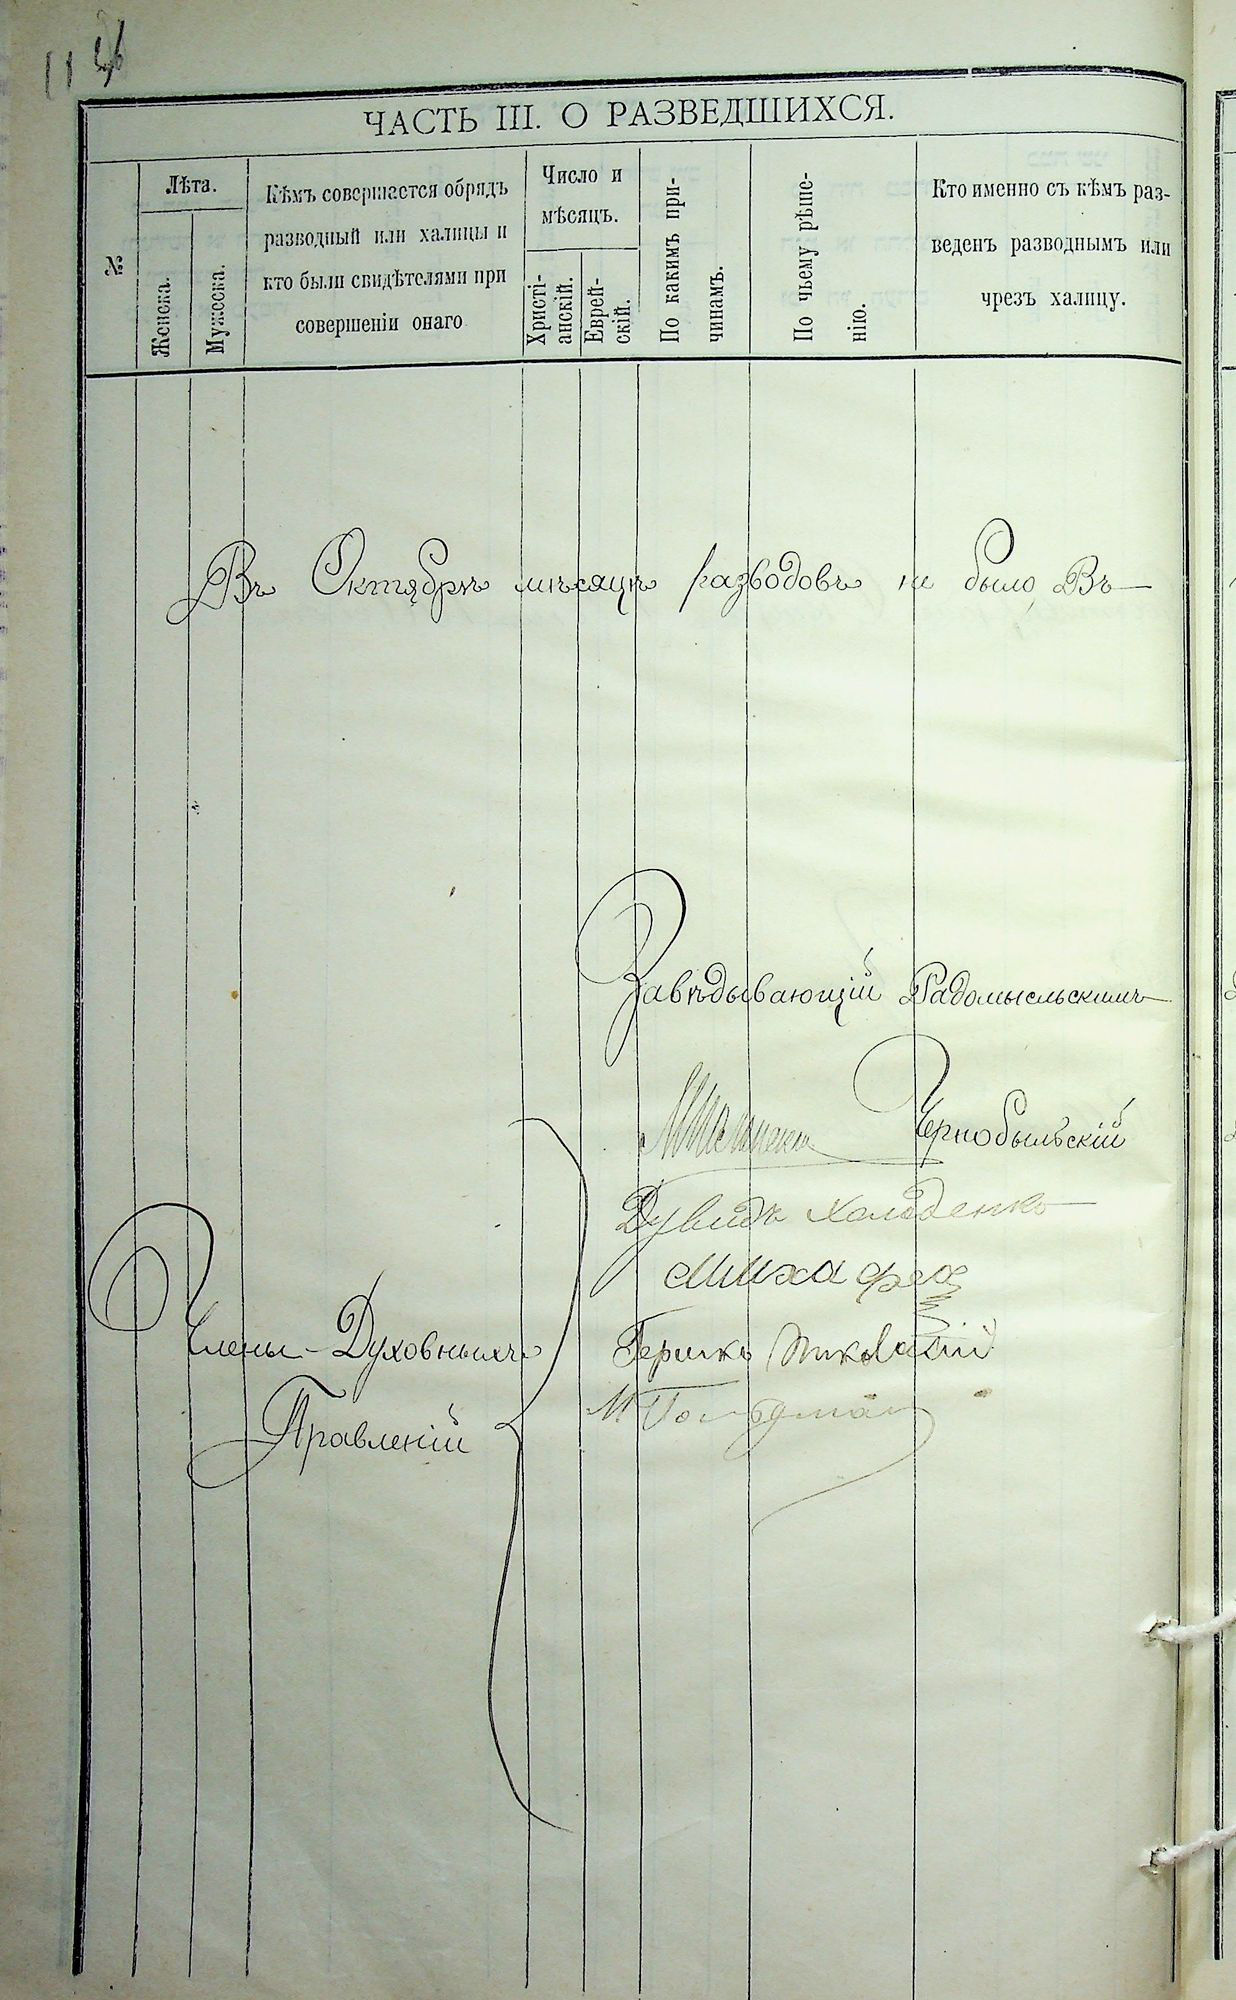 ЧАСТЬ III. О РАЗВЕДШИХСЯ.
№
Лѣта.
Женска.
Мужеска.
Кѣмъ совершается обрядъ
разводный или халицы и
кто были свидѣтелями при
совершеніи онаго
Число и
мѣсяцъ.
Христі-
анскій.
Еврей-
скій.
По какимъ при-
чинамъ.
По чьему рѣше-
нію.
Кто именно съ кѣмъ раз-
веденъ разводнымъ или
чрезъ халицу.
Въ Октябрѣ мѣсяцѣ разводовъ не было Въ
Завѣдывающій Радомысльскимъ
Чернобыльскій
Дувидъ Халаденко
Миха
Члены Духовныхъ
Гершко
Правленій
М Гольдман